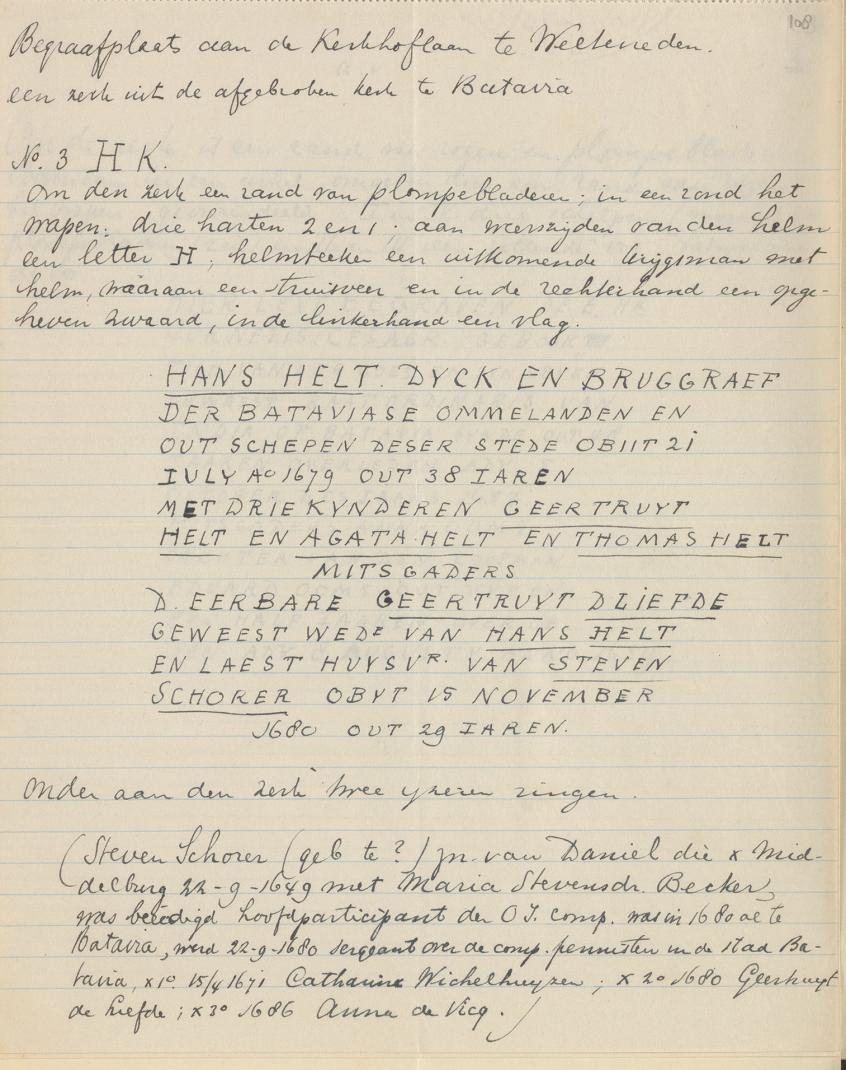 108
Begraafplaats aan de Kerkhoflaan te Weltevreden.
een zerk uit de afgebroken kerk te Batavia
No. 3 H K.
Om den zerk een rand van plompebladeren; in een rond het
wapen: drie harten 2 en 1; aan weerszijden van den helm
een letter H; helmteeken een uitkomende krijgsman met
helm, waaraan een struisveer en in de rechterhand een opge-
heven zwaard, in de linkerhand een vlag.
HANS HELT. DYCK EN BRUGGRAEF
DER BATAVIASE OMMELANDEN EN
OUT SCHEPEN DESER STEDE OBIIT 21
IULY Ao 1679 OUT 38 IAREN
MET DRIE KYNDEREN GEERTRUYT
HELT EN AGATA HELT EN THOMAS HELT
MITSGADERS
D. EERBARE GEERTRUYT DLIEFDE
GEWEEST WEDE VAN HANS HELT
EN LAEST HUYSVR. VAN STEVEN
SCHORER OBYT 15 NOVEMBER
1680 OUT 29 IAREN.
Onder aan den zerk twee yzeren ringen.
(Steven Schorer (geb te?) zn. van Daniel die x Mid-
delburg 22-9-1649 met Maria Stevensdr. Becker,
was beëdigd hoofdparticipant der O I. comp. was in 1680 al te
Batavia, werd 22-9-1680 sergeant over de comp. pennisten in de stad Ba-
tavia, x 1o. 15/4 1671 Catharina Wichelhuyzen; x 2o 1680 Geertruyt
de Liefde; x 3o 1686 Anna de Vicq.)